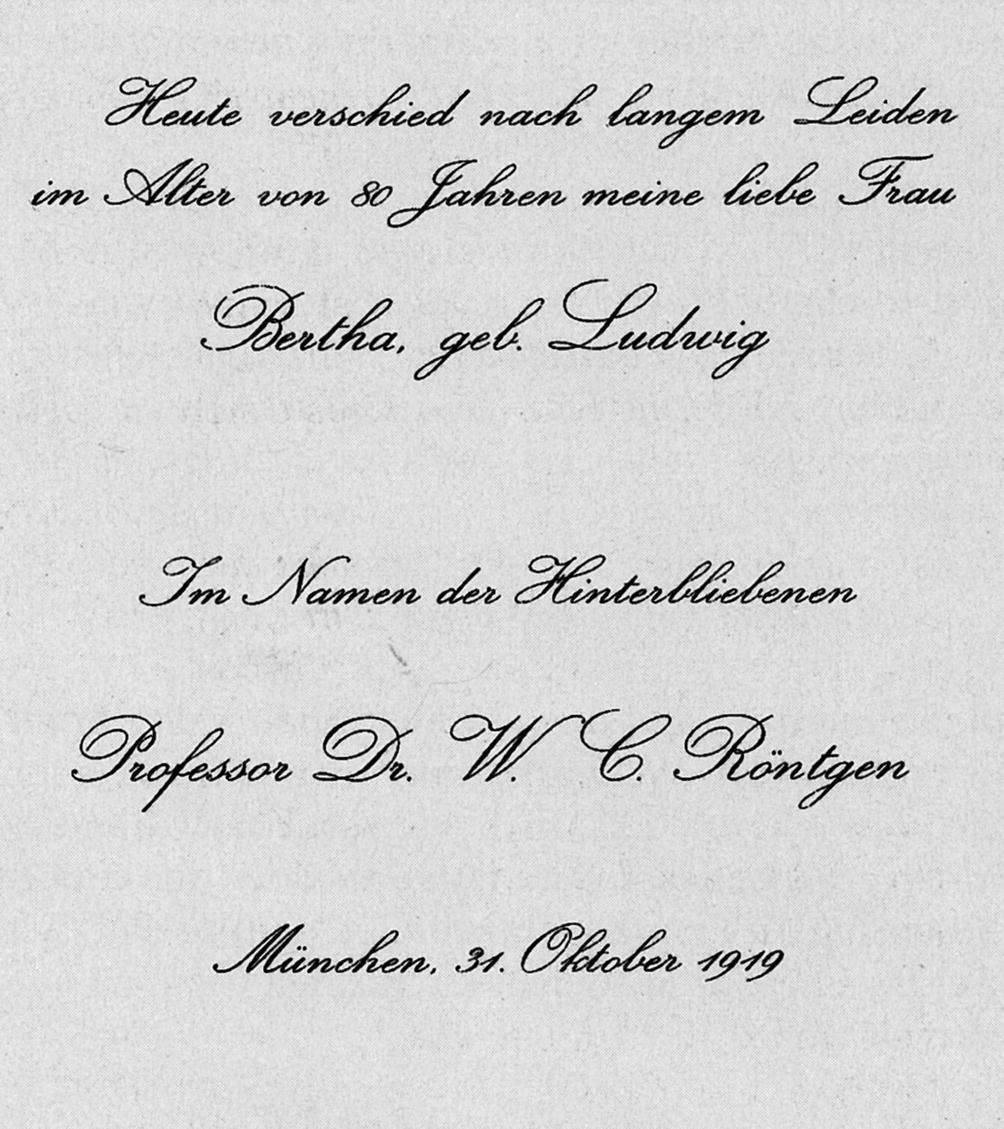 Heute verschied nach langem Leiden
im Alter von 80 Jahren meine liebe Frau
Bertha, geb. Ludwig
Im Namen der Hinterbliebenen
Professor Dr. W. C. Röntgen
München, 31. Oktober 1919